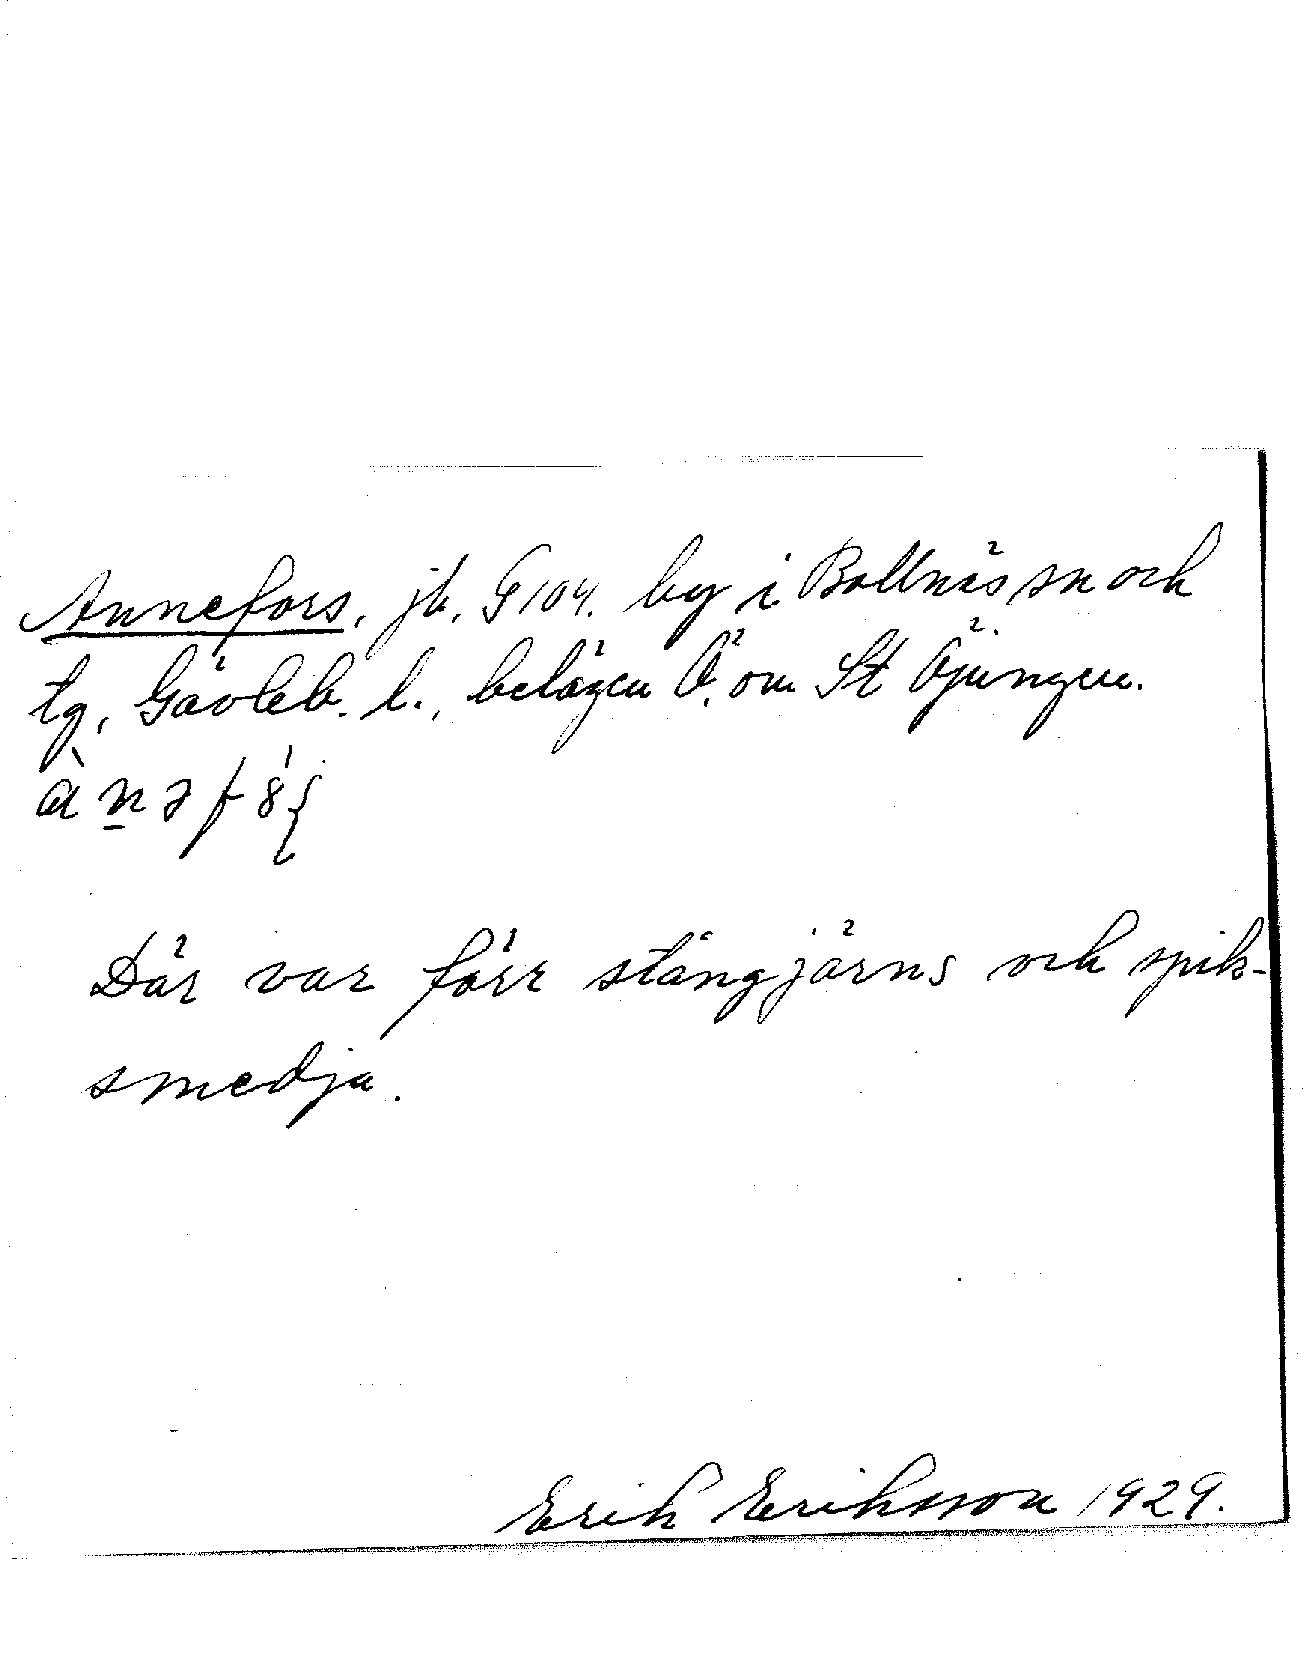 Annefors, jk, G 104. by i Bollnäs sn och
tg, Gävleb. l., belägen Ö. om St Öjungen.
Där var förr stångjärns och spik-
smedja.
Erik Eriksson 1929.